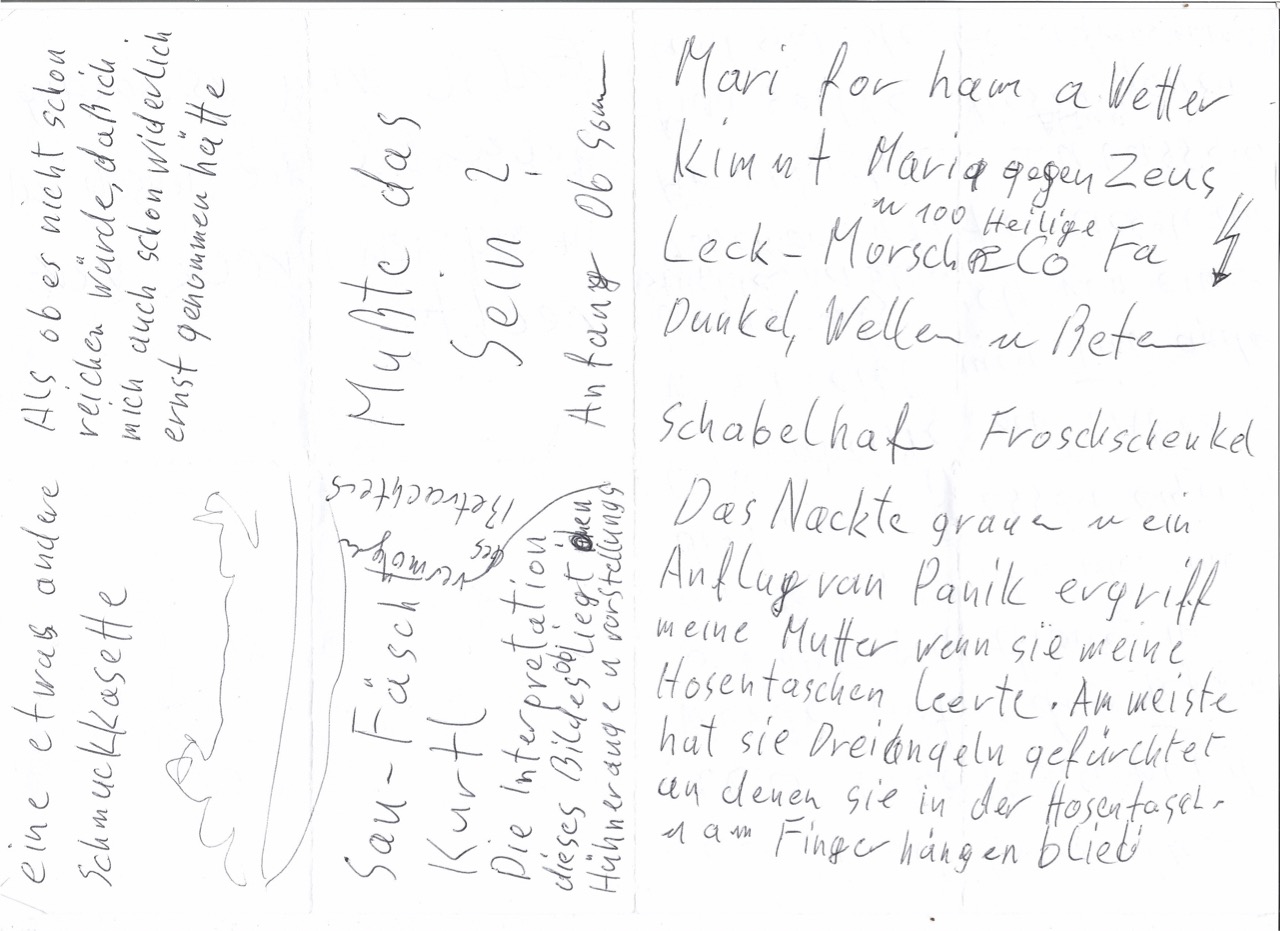 Als ob es nicht schon
reichen würde, daß ich
mich auch schon widerlich
ernst genommen hätte
eine etwas andere
Schmuckkasette
Mußte das
sein ?
Anfang Ob
Sau-Fäscht
Kurtl
Die Interpretation
dieses Bildes ob liegt
Hühnerauge u vorstellungs
vermögen
des
Betrachters
Mari for ham a Wetter
Kimnt Maria gegen Zeus
u 100 Heilige
Leck-Morsch & Co Fa
Dunkel, Wellen u Beten
Schabelhaf Froschschenkel
Das Nackte grauen u ein
Anflug van Panik ergriff
meine Mutter wenn sie meine
Hosentaschen leerte. Am meiste
hat sie Dreiangeln gefürchtet
an denen sie in der Hosentasch.
u am Finger hängen blieb